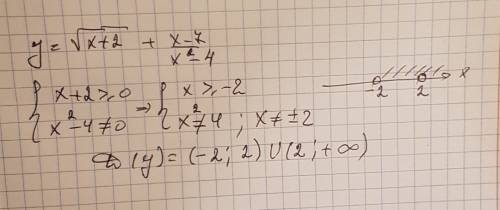 y = √(x+2) + (x-7)/(x²-4)
{ x+2 ≥ 0 ⇒ { x ≥ -2
{ x²-4 ≠ 0 { x² ≠ 4 ; x ≠ ±2
-2 2 x
D(y) = (-2; 2) ∪ (2; +∞)